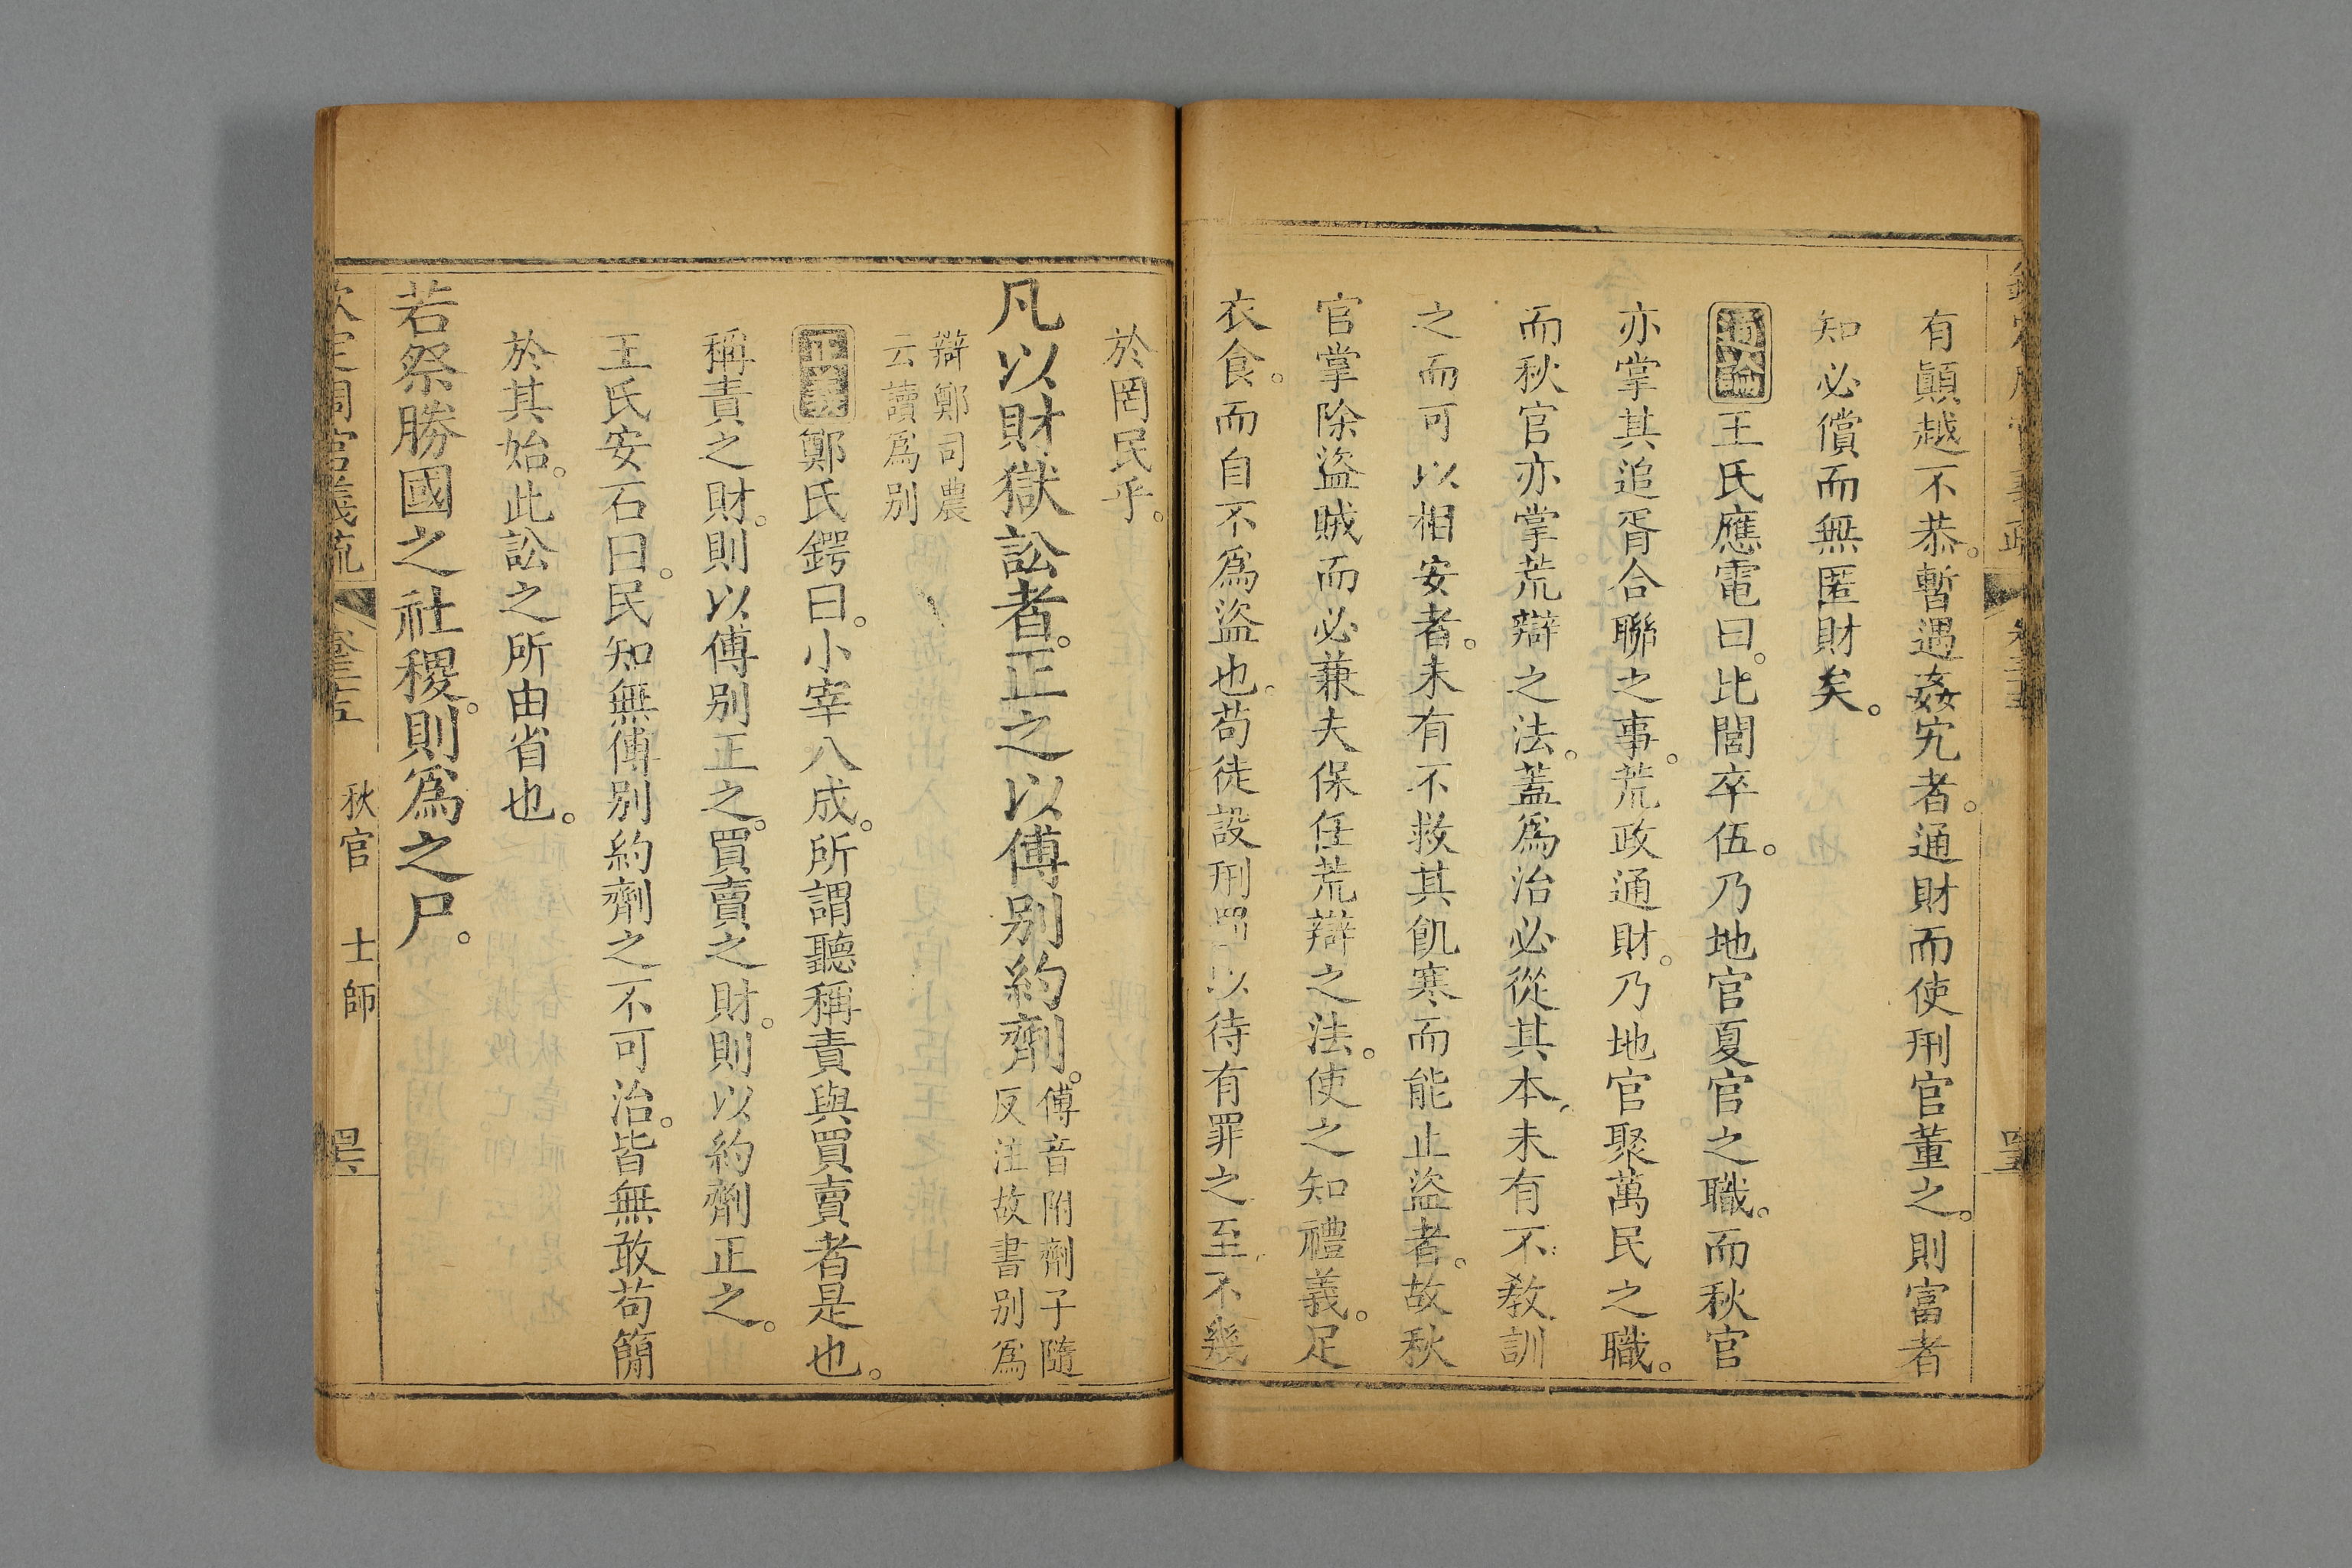 有顚越不恭。暫遇姦宄者。通財而使刑官董之。則富者
知必償而無匿財矣。
通論王氏應電曰。比閭卒伍。乃地官夏官之職。而秋官
亦掌其追胥合聯之事。荒政通財。乃地官聚萬民之職。
而秋官亦掌荒辯之法。蓋爲治必從其本。未有不敎訓
之而可以相安者。未有不救其飢寒而能止盜者。故秋
官掌除盜賊而必兼夫保任荒辯之法。使之知禮義。足
衣食。而自不爲盜也。苟徒設刑罰以待有罪之至。不幾
於罔民乎。
凡以財獄訟者。正之以傅别約劑。傅音附劑子隨
反注故書别爲
辯鄭司農
云讀爲别
正義鄭氏鍔曰。小宰八成。所謂聽稱責與買賣者是也。
稱責之財。則以傅别正之。買賣之財。則以約劑正之。
王氏安石曰。民知無傅别約劑之不可治。皆無敢苟簡
於其始。此訟之所由省也。
若祭勝國之社稷。則爲之尸。
欽定周官義疏 卷三十五 秋官 士師